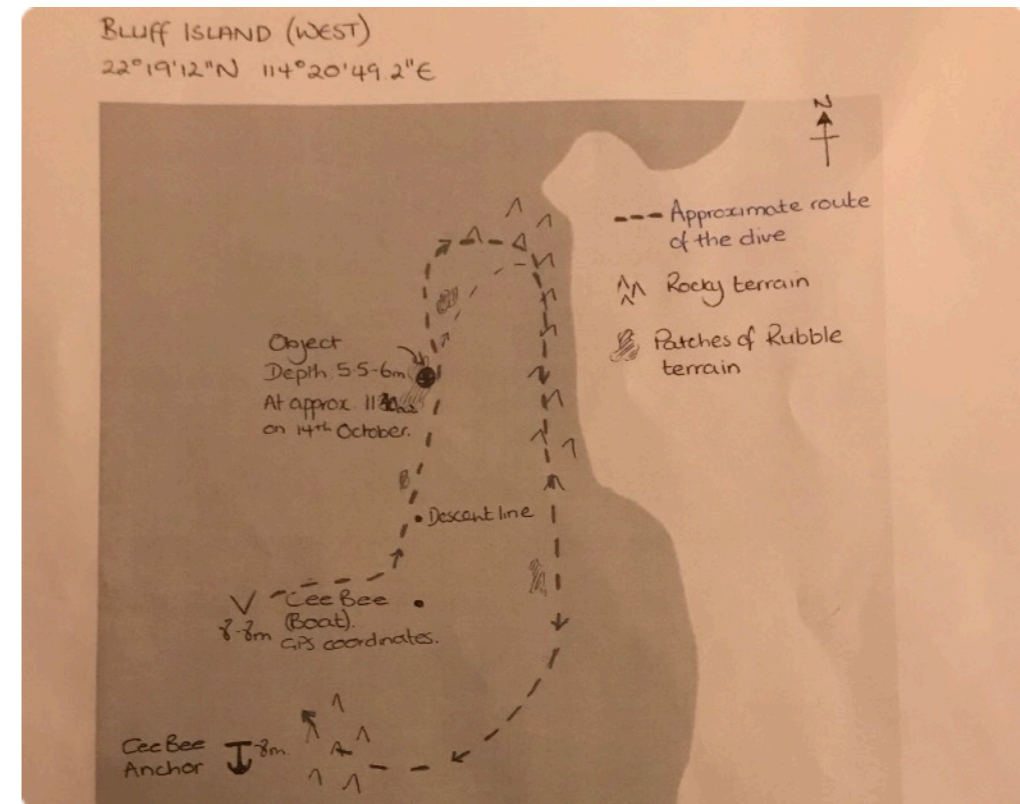 BLUFF ISLAND (WEST)
22°19'12"N 114°20'49.2"E
N
Approximate route
of the dive
Rocky terrain
Patches of Rubble
terrain
Object
Depth 5.5-6m
At approx.
on 14th October.
Descent line
CeeBee
(Boat).
GPS coordinates.
CeeBee
Anchor
8m